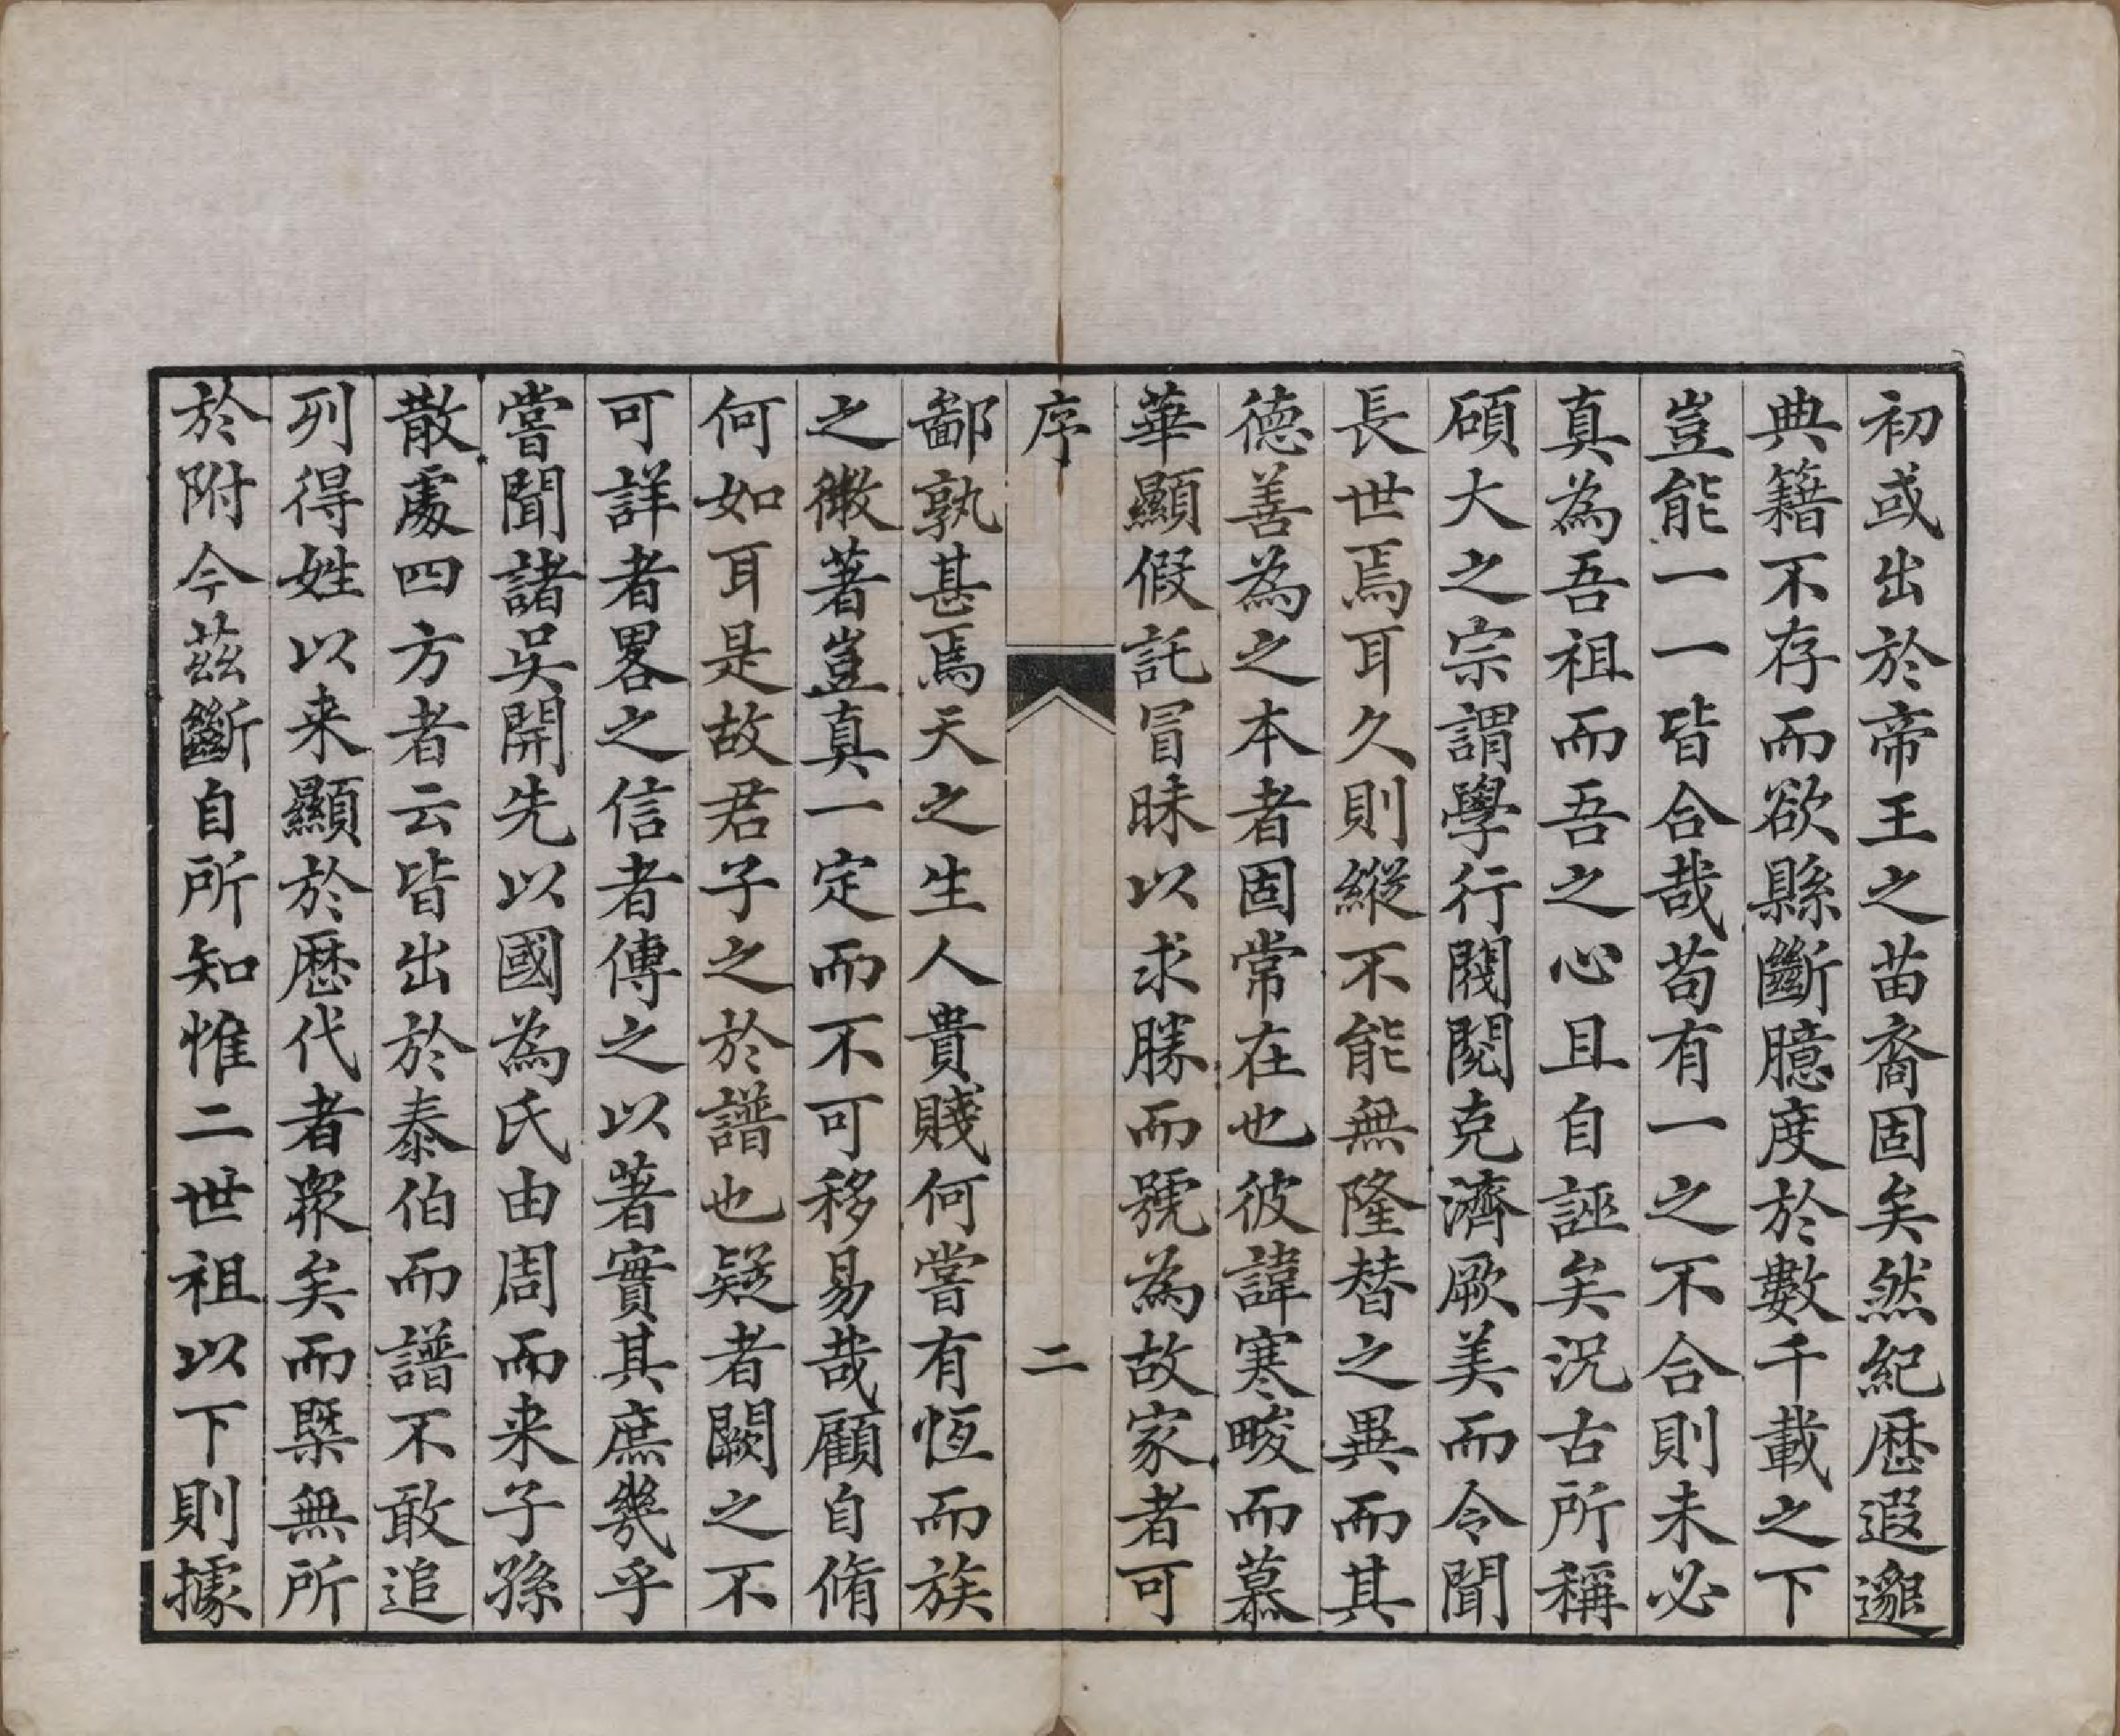 初或出於帝王之苗裔固矣然紀歴遐邈
典籍不存而欲縣斷臆度於數千載之下
豈能一一皆合哉茍有一之不合則未必
真為吾祖而吾之心且自誣矣況古所稱
碩大之宗謂學行閥閱克濟厥美而令聞
長世焉耳久則縱不能無隆替之異而其
德善為之本者固常在也彼諱寒畯而慕
華顯假託冒昧以求勝而號為故家者可
序
二
鄙孰甚焉天之生人貴賤何嘗有恆而族
之微著豈真一定而不可移易哉顧自脩
何如耳是故君子之於譜也疑者闕之不
可詳者畧之信者傳之以著實其庶幾乎
嘗聞諸吳開先以國為氏由周而来子孫
散處四方者云皆出於泰伯而譜不敢追
列得姓以来顯於歴代者衆矣而槩無所
於附今茲斷自所知惟二世祖以下則據